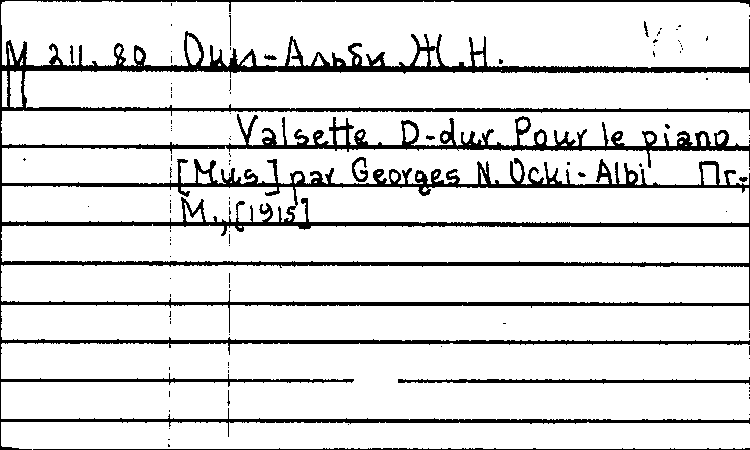 М 211.80 Оки-Альби, Ж.Н.
Valsette. D-dur. Pour le piano.
[Mus.] par Georges N. Ocki-Albi. Пг.-
М., [1915]